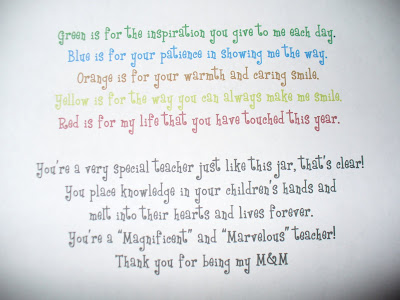 Green is for the inspiration you give to me each day.
Blue is for your patience in showing me the way.
Orange is for your warmth and caring smile.
Yellow is for the way you can always make me smile.
Red is for my life that you have touched this year.
You're a very special teacher just like this jar, that's clear!
You place knowledge in your children's hands and
melt into their hearts and lives forever.
You're a "Magnificent" and "Marvelous" teacher!
Thank you for being my M&M